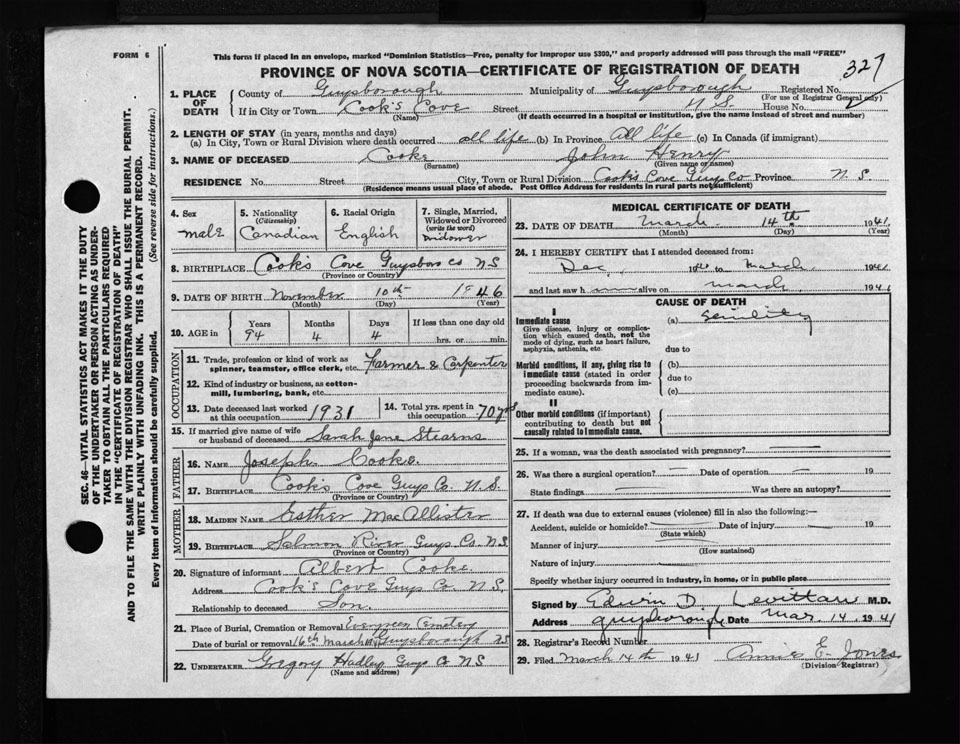 FORM 6
This form if placed in an envelope, marked "Dominion Statistics—Free, penalty for improper use $300," and properly addressed will pass through the mail "FREE"
PROVINCE OF NOVA SCOTIA—CERTIFICATE OF REGISTRATION OF DEATH
327
1. PLACE OF DEATH
County of Guysborough Municipality of Guysborough Registered No.
(For use of Registrar General only)
If in City or Town Cook's Cove Street N.S. House No.
(Name) (If death occurred in a hospital or institution, give the name instead of street and number)
2. LENGTH OF STAY (in years, months and days)
(a) In City, Town or Rural Division where death occurred all life (b) In Province All life (c) In Canada (if immigrant)
3. NAME OF DECEASED Cooke John Henry
(Surname) (Given name or names)
RESIDENCE No. Street City, Town or Rural Division Cook's Cove Guys Co Province N.S.
(Residence means usual place of abode. Post Office Address for residents in rural parts not sufficient)
4. Sex male
5. Nationality (Citizenship) Canadian
6. Racial Origin English
7. Single, Married, Widowed or Divorced (write the word) Widower
8. BIRTHPLACE Cook's Cove Guysboro Co NS
(Province or Country)
9. DATE OF BIRTH November 10th 1846
(Month) (Day) (Year)
10. AGE in Years 94 Months 4 Days 4 If less than one day old hrs. or min.
OCCUPATION
11. Trade, profession or kind of work as spinner, teamster, office clerk, etc. Farmer & Carpenter
12. Kind of industry or business, as cotton-mill, lumbering, bank, etc.
13. Date deceased last worked at this occupation 1931
14. Total yrs. spent in this occupation 70 yrs
15. If married give name of wife or husband of deceased Sarah Jane Stearns
FATHER
16. NAME Joseph Cooke.
17. BIRTHPLACE Cook's Cove Guys Co. N.S.
(Province or Country)
MOTHER
18. MAIDEN NAME Esther MacAllister
19. BIRTHPLACE Salmon River Guys Co. N.S
(Province or Country)
20. Signature of informant Albert Cooke.
Address Cook's Cove Guys Co. N.S.
Relationship to deceased Son.
21. Place of Burial, Cremation or Removal Evergreen Cemetery
Date of burial or removal 16th March Guysborough NS
22. UNDERTAKER Gregory Hadley Guys Co NS
(Name and address)
MEDICAL CERTIFICATE OF DEATH
23. DATE OF DEATH March 14th 1941
(Month) (Day) (Year)
24. I HEREBY CERTIFY that I attended deceased from:
Dec. to March 1941
and last saw h alive on March 1941
CAUSE OF DEATH
I
Immediate cause
Give disease, injury or complication which caused death, not the mode of dying, such as heart failure, asphyxia, asthenia, etc.
(a) Senility
due to
Morbid conditions, if any, giving rise to immediate cause (stated in order proceeding backwards from immediate cause).
(b)
due to
(c)
II
Other morbid conditions (if important) contributing to death but not causally related to immediate cause.
25. If a woman, was the death associated with pregnancy?
26. Was there a surgical operation? — Date of operation — 19
State findings Was there an autopsy?
27. If death was due to external causes (violence) fill in also the following:—
Accident, suicide or homicide? Date of injury 19
(State which)
Manner of injury
(How sustained)
Nature of injury
Specify whether injury occurred in industry, in home, or in public place
Signed by Edwin D. Levittan M.D.
Address Guysborough Date Mar. 14, 1941
28. Registrar's Record Number
29. Filed March 14th 1941 Annie E. Jones
(Division Registrar)
SEC. 46—VITAL STATISTICS ACT MAKES IT THE DUTY
OF THE UNDERTAKER OR PERSON ACTING AS UNDER-
TAKER TO OBTAIN ALL THE PARTICULARS REQUIRED
IN THE "CERTIFICATE OF REGISTRATION OF DEATH"
AND TO FILE THE SAME WITH THE DIVISION REGISTRAR WHO SHALL ISSUE THE BURIAL PERMIT.
WRITE PLAINLY WITH UNFADING INK. THIS IS A PERMANENT RECORD.
Every item of information should be carefully supplied. (See reverse side for instructions.)